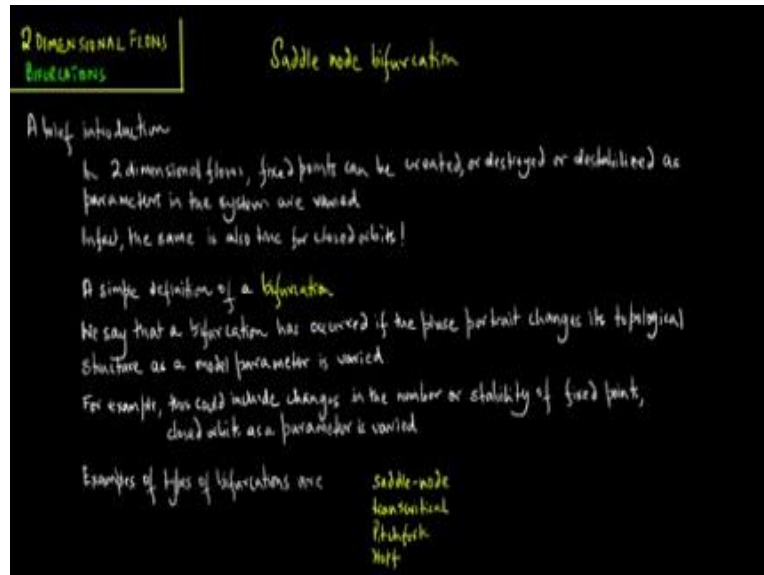 2 DIMENSIONAL FLOWS
BIFURCATIONS
Saddle node bifurcation
A brief introduction
In 2 dimensional flows, fixed points can be created, or destroyed or destabilized as
parameters in the system are varied
Infact, the same is also true for closed orbits!
A simple definition of a bifurcation
We say that a bifurcation has occurred if the phase portrait changes its topological
structure as a model parameter is varied
For example, this could include changes in the number or stability of fixed points,
closed orbits as a parameter is varied
Examples of types of bifurcations are
saddle-node
transcritical
Pitchfork
Hopf